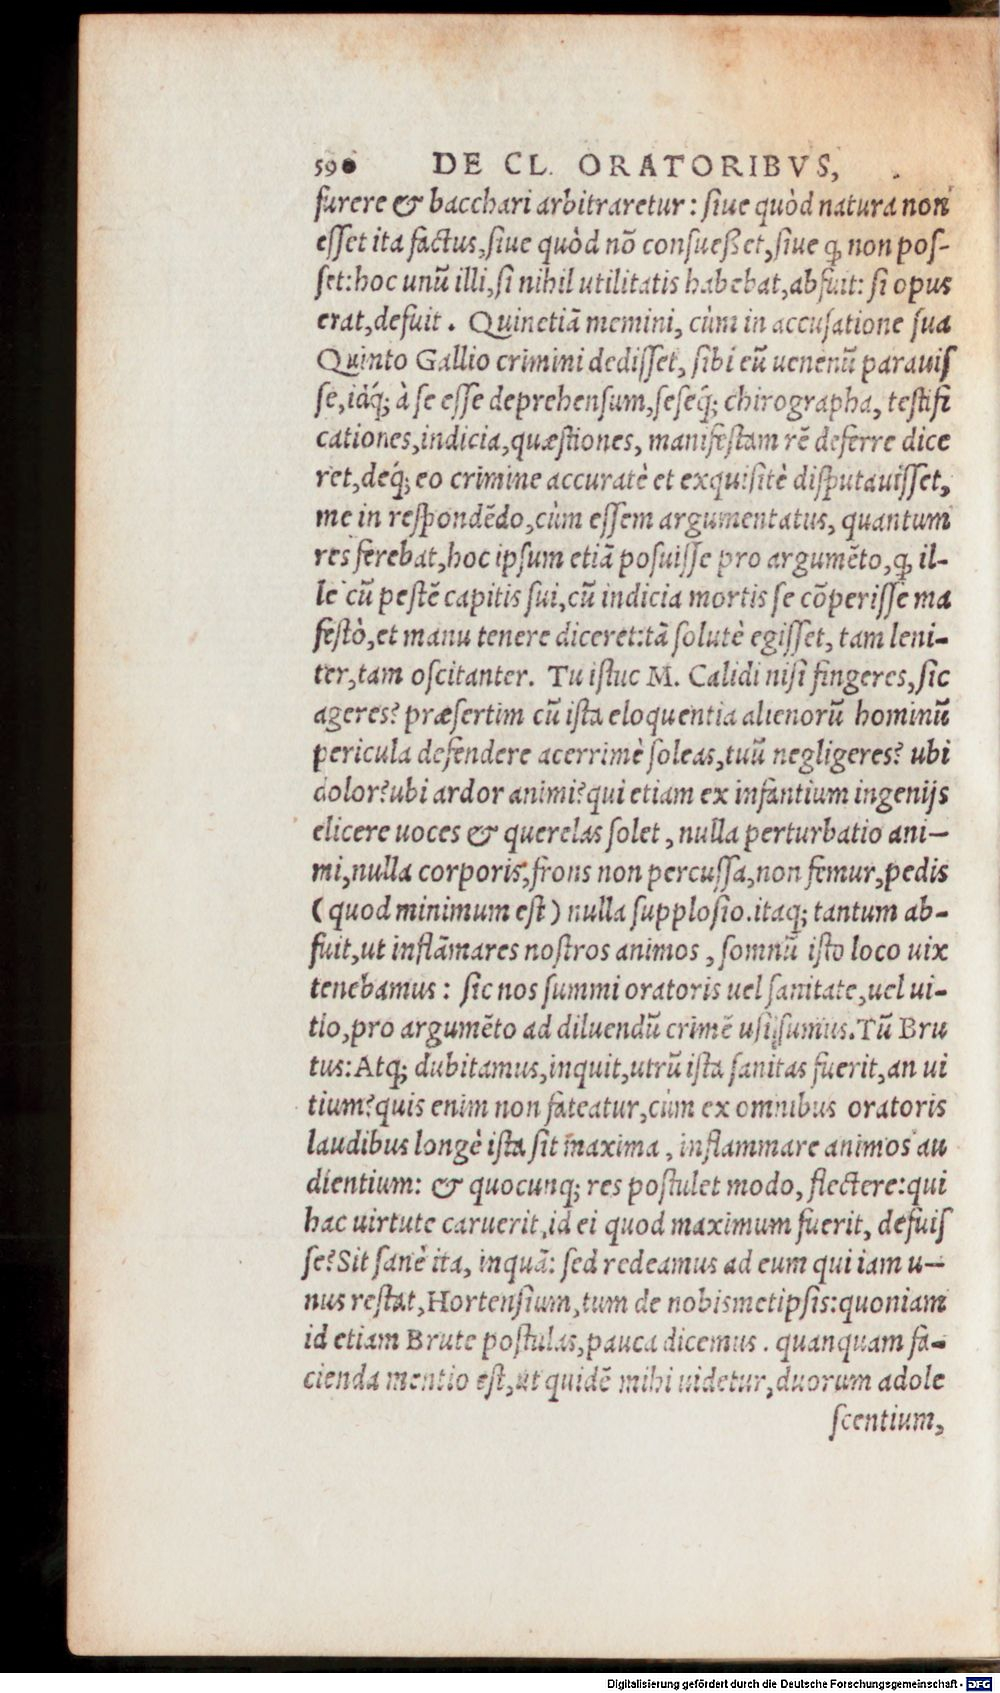 590 DE CL. ORATORIBVS,
furere & bacchari arbitraretur: ſiue quòd natura non
eſſet ita factus, ſiue quòd nõ conſueßet, ſiue ꝙ non poſ-
ſet: hoc unũ illi, ſi nihil utilitatis habebat, abfuit: ſi opus
erat, defuit. Quinetiã memini, cùm in accuſatione ſua
Quinto Gallio crimini dediſſet, ſibi eũ uenenũ parauiſ
ſe, idq́; à ſe eſſe deprehenſum, ſeſeq́; chirographa, teſtifi
cationes, indicia, quæſtiones, manifeſtam rẽ deferre dice
ret, deq́; eo crimine accuratè et exquiſitè diſputauiſſet,
me in reſpondẽdo, cùm eſſem argumentatus, quantum
res ferebat, hoc ipſum etiã poſuiſſe pro argumẽto, ꝙ il-
le cũ peſtẽ capitis ſui, cũ indicia mortis ſe cõperiſſe ma
feſtò, et manu tenere diceret: tã ſolutè egiſſet, tam leni-
ter, tam oſcitanter. Tu iſtuc M. Calidi niſi fingeres, ſic
ageres? præſertim cũ iſta eloquentia alienorũ hominũ
pericula defendere acerrimè ſoleas, tuũ negligeres? ubi
dolor? ubi ardor animi? qui etiam ex infantium ingenijs
elicere uoces & querelas ſolet, nulla perturbatio ani-
mi, nulla corporis, frons non percuſſa, non femur, pedis
(quod minimum eſt) nulla ſupploſio. itaq; tantum ab-
fuit, ut inflãmares noſtros animos, ſomnũ iſto loco uix
tenebamus: ſic nos ſummi oratoris uel ſanitate, uel ui-
tio, pro argumẽto ad diluendũ crimẽ uſi ſumus. Tũ Bru
tus: Atq; dubitamus, inquit, utrũ iſta ſanitas fuerit, an ui
tium? quis enim non fateatur, cùm ex omnibus oratoris
laudibus longè iſta ſit maxima, inflammare animos au
dientium: & quocunq; res poſtulet modo, flectere: qui
hac uirtute caruerit, id ei quod maximum fuerit, defuiſ
ſe? Sit ſanè ita, inquã: ſed redeamus ad eum qui iam u-
nus reſtat, Hortenſium, tum de nobismetipſis: quoniam
id etiam Brute poſtulas, pauca dicemus. quanquam fa-
cienda mentio eſt, ut quidẽ mihi uidetur, duorum adole
ſcentium,
Digitalisierung gefördert durch die Deutsche Forschungsgemeinschaft - DFG